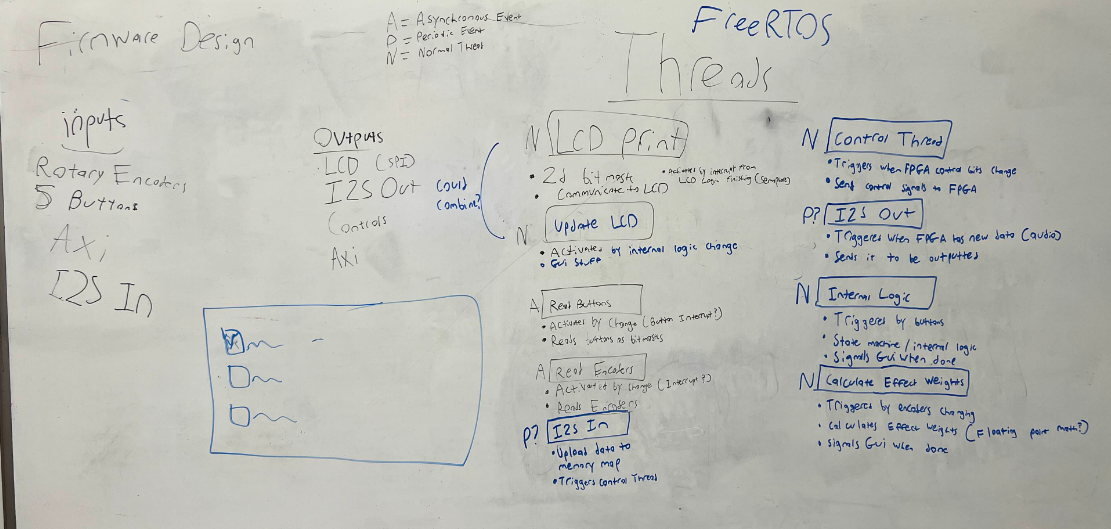 Firmware Design
A = Asynchronous Event
P = Periodic Event
N = Normal Thread
FreeRTOS
Threads
inputs
Rotary Encoders
5 Buttons
Axi
I2S In
Outputs
LCD (SPI)
I2S Out
Controls
Axi
Could
Combine?
N LCD Print
• 2d bitmask
• Communicate to LCD
• Activated by interrupt from
LCD Logic finishing (semaphore)
N Update LCD
• Activated by internal logic change
• GUI Stuff
A Read Buttons
• Activated by Change (Button Interrupt?)
• Reads buttons as bitmasks
A Read Encoders
• Activated by Change (Interrupt?)
• Reads Encoders
P? I2S In
• Upload data to
memory map
• Triggers Control Thread
N Control Thread
• Triggers when FPGA control bits change
• Send control signals to FPGA
P? I2S Out
• Triggered when FPGA has new data (audio)
• Sends it to be outputted
N Internal Logic
• Triggered by buttons
• State machine / internal logic
• Signals GUI when done
N Calculate Effect Weights
• Triggered by encoders changing
• Calculates Effect Weights (Floating point math?)
• Signals GUI when done